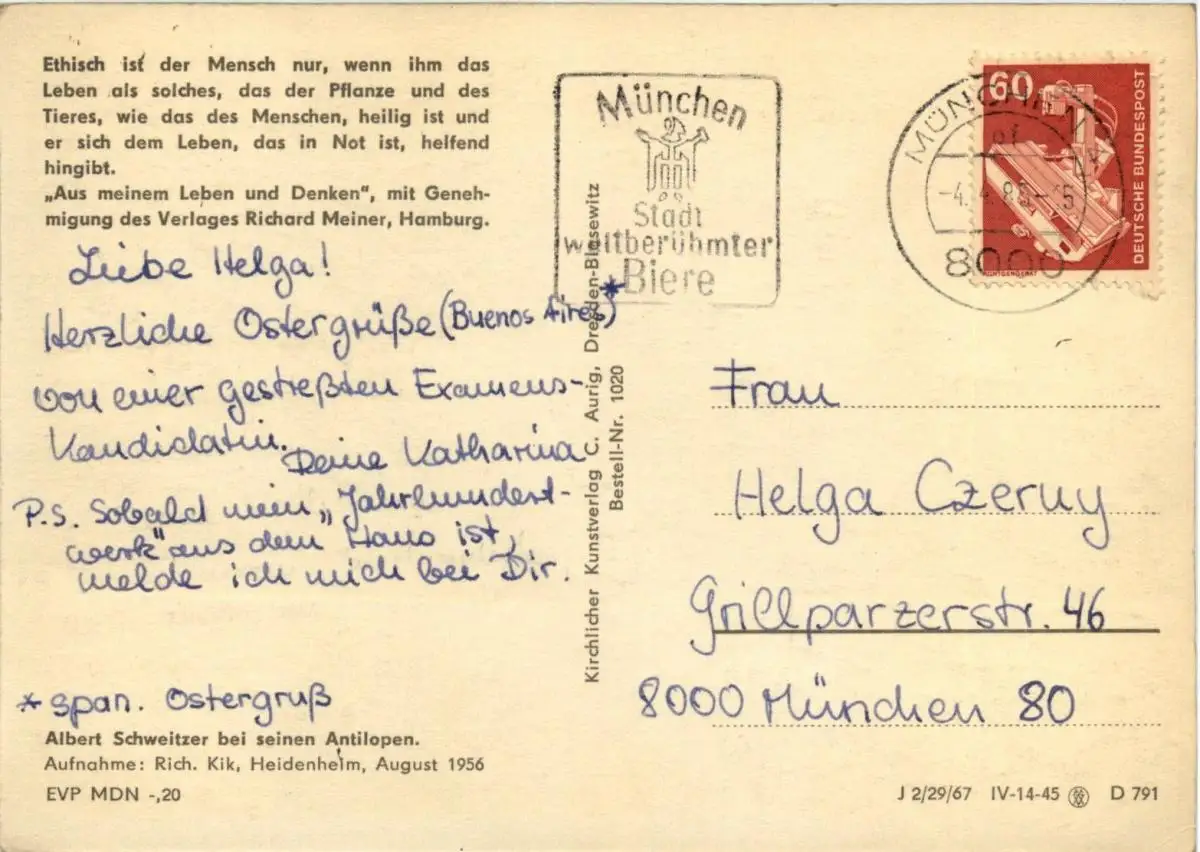 Ethisch ist der Mensch nur, wenn ihm das
Leben als solches, das der Pflanze und des
Tieres, wie das des Menschen, heilig ist und
er sich dem Leben, das in Not ist, helfend
hingibt.
„Aus meinem Leben und Denken“, mit Geneh-
migung des Verlages Richard Meiner, Hamburg.
Liebe Helga!
Herzliche Ostergrüße (Buenos Aires)*
von einer gestreßten Examens-
Kandidatin.
Deine Katharina
P.S. Sobald mein „Jahrhundert-
werk“ aus dem Haus ist,
melde ich mich bei Dir.
* span. Ostergruß
Albert Schweitzer bei seinen Antilopen.
Aufnahme: Rich. Kik, Heidenheim, August 1956
EVP MDN -,20
Kirchlicher Kunstverlag C. Aurig, Dresden-Blasewitz
Bestell-Nr. 1020
München
Stadt
weltberühmter
Biere
MÜNCHEN
8000
60
DEUTSCHE BUNDESPOST
RÖNTGENGERÄT
Frau
Helga Czerny
Grillparzerstr. 46
8000 München 80
J 2/29/67 IV-14-45 D 791